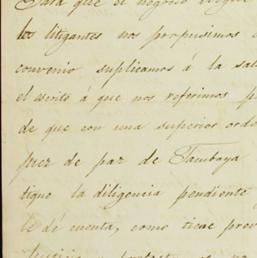 Para que el negocio
los litigantes nos propusimos
convenio, suplicamos á la
el escrito á que nos referimos
de que con una superior
juez de paz de Tacubaya
tique la diligencia pendiente
le dé cuenta, como tiene